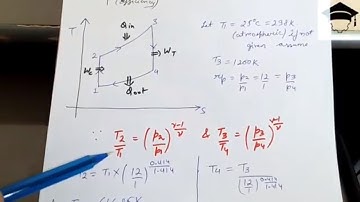 (Efficiency)
T
Qin
3
2
WT
Wc
4
1
Qout
S
Let T1 = 25°C = 298K
(atmospheric) if not
given assume
T3 = 1200K
rp = p2/p1 = 12/1 = p3/p4
∵ T2/T1 = (p2/p1)^(γ-1/γ) & T3/T4 = (p3/p4)^(γ-1/γ)
T2 = T1 × (12/1)^(0.414/1.414)
T4 = T3/(12/1)^(0.414/1.414)